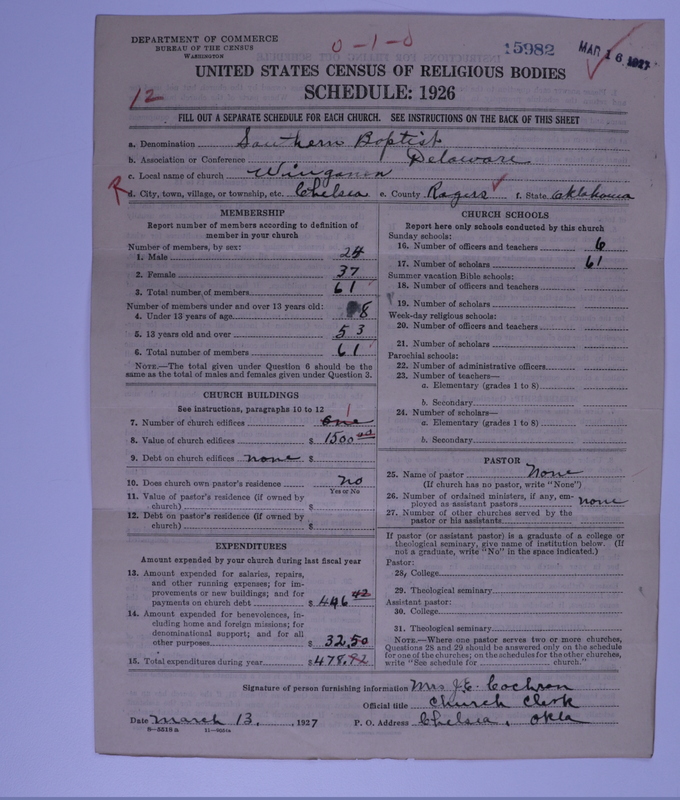 DEPARTMENT OF COMMERCE
BUREAU OF THE CENSUS
WASHINGTON
0-1-0
15982
MAR 16 1927
UNITED STATES CENSUS OF RELIGIOUS BODIES
12
SCHEDULE: 1926
FILL OUT A SEPARATE SCHEDULE FOR EACH CHURCH. SEE INSTRUCTIONS ON THE BACK OF THIS SHEET
a. Denomination Southern Baptist
b. Association or Conference Delaware
c. Local name of church Winganon
R
d. City, town, village, or township, etc. Chelsea e. County Rogers f. State Oklahoma
MEMBERSHIP
Report number of members according to definition of
member in your church
Number of members, by sex:
1. Male 24
2. Female 37
3. Total number of members 61
Number of members under and over 13 years old:
4. Under 13 years of age 8
5. 13 years old and over 53
6. Total number of members 61
NOTE.—The total given under Question 6 should be the
same as the total of males and females given under Question 3.
CHURCH BUILDINGS
See instructions, paragraphs 10 to 12
7. Number of church edifices one 1
8. Value of church edifices $ 1500 00
9. Debt on church edifices none $
10. Does church own pastor's residence no
Yes or No
11. Value of pastor's residence (if owned by
church) $
12. Debt on pastor's residence (if owned by
church) $
EXPENDITURES
Amount expended by your church during last fiscal year
13. Amount expended for salaries, repairs,
and other running expenses; for im-
provements or new buildings; and for
payments on church debt $ 446 42
14. Amount expended for benevolences, in-
cluding home and foreign missions; for
denominational support; and for all
other purposes $ 32.50
15. Total expenditures during year $ 478.92
CHURCH SCHOOLS
Report here only schools conducted by this church
Sunday schools:
16. Number of officers and teachers 6
17. Number of scholars 61
Summer vacation Bible schools:
18. Number of officers and teachers
19. Number of scholars
Week-day religious schools:
20. Number of officers and teachers
21. Number of scholars
Parochial schools:
22. Number of administrative officers
23. Number of teachers—
a. Elementary (grades 1 to 8)
b. Secondary
24. Number of scholars—
a. Elementary (grades 1 to 8)
b. Secondary
PASTOR
25. Name of pastor None
(If church has no pastor, write "None")
26. Number of ordained ministers, if any, em-
ployed as assistant pastors none
27. Number of other churches served by the
pastor or his assistants
If pastor (or assistant pastor) is a graduate of a college or
theological seminary, give name of institution below. (If
not a graduate, write "No" in the space indicated.)
Pastor:
28. College
29. Theological seminary
Assistant pastor:
30. College
31. Theological seminary
NOTE.—Where one pastor serves two or more churches,
Questions 28 and 29 should be answered only on the schedule
for one of the churches; on the schedules for the other churches,
write "See schedule for church."
Signature of person furnishing information Mrs J.E. Cochran
Official title Church Clerk
Date March 13, , 1927 P. O. Address Chelsea, Okla